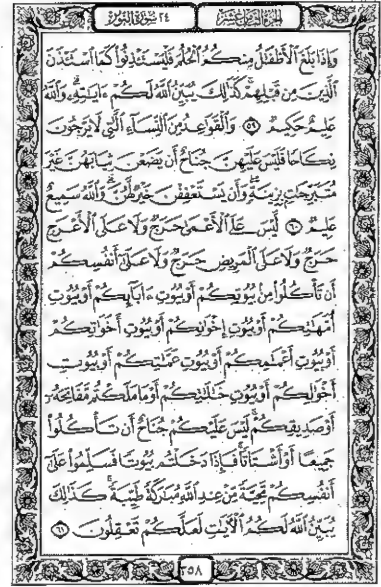 الجزء الثامن عشر
٢٤ سورة النور
وَإِذَا بَلَغَ ٱلْأَطْفَٰلُ مِنكُمُ ٱلْحُلُمَ فَلْيَسْتَـْٔذِنُوا۟ كَمَا ٱسْتَـْٔذَنَ
ٱلَّذِينَ مِن قَبْلِهِمْ ۚ كَذَٰلِكَ يُبَيِّنُ ٱللَّهُ لَكُمْ ءَايَٰتِهِۦ ۗ وَٱللَّهُ
عَلِيمٌ حَكِيمٌ ۝٥٩ وَٱلْقَوَٰعِدُ مِنَ ٱلنِّسَآءِ ٱلَّٰتِى لَا يَرْجُونَ
نِكَاحًا فَلَيْسَ عَلَيْهِنَّ جُنَاحٌ أَن يَضَعْنَ ثِيَابَهُنَّ غَيْرَ
مُتَبَرِّجَٰتٍۭ بِزِينَةٍ ۖ وَأَن يَسْتَعْفِفْنَ خَيْرٌ لَّهُنَّ ۗ وَٱللَّهُ سَمِيعٌ
عَلِيمٌ ۝٦٠ لَّيْسَ عَلَى ٱلْأَعْمَىٰ حَرَجٌ وَلَا عَلَى ٱلْأَعْرَجِ
حَرَجٌ وَلَا عَلَى ٱلْمَرِيضِ حَرَجٌ وَلَا عَلَىٰٓ أَنفُسِكُمْ
أَن تَأْكُلُوا۟ مِنۢ بُيُوتِكُمْ أَوْ بُيُوتِ ءَابَآئِكُمْ أَوْ بُيُوتِ
أُمَّهَٰتِكُمْ أَوْ بُيُوتِ إِخْوَٰنِكُمْ أَوْ بُيُوتِ أَخَوَٰتِكُمْ
أَوْ بُيُوتِ أَعْمَٰمِكُمْ أَوْ بُيُوتِ عَمَّٰتِكُمْ أَوْ بُيُوتِ
أَخْوَٰلِكُمْ أَوْ بُيُوتِ خَٰلَٰتِكُمْ أَوْ مَا مَلَكْتُم مَّفَاتِحَهُۥٓ
أَوْ صَدِيقِكُمْ ۚ لَيْسَ عَلَيْكُمْ جُنَاحٌ أَن تَأْكُلُوا۟
جَمِيعًا أَوْ أَشْتَاتًا ۚ فَإِذَا دَخَلْتُم بُيُوتًا فَسَلِّمُوا۟ عَلَىٰٓ
أَنفُسِكُمْ تَحِيَّةً مِّنْ عِندِ ٱللَّهِ مُبَٰرَكَةً طَيِّبَةً ۚ كَذَٰلِكَ
يُبَيِّنُ ٱللَّهُ لَكُمُ ٱلْءَايَٰتِ لَعَلَّكُمْ تَعْقِلُونَ ۝٦١
٣٥٨